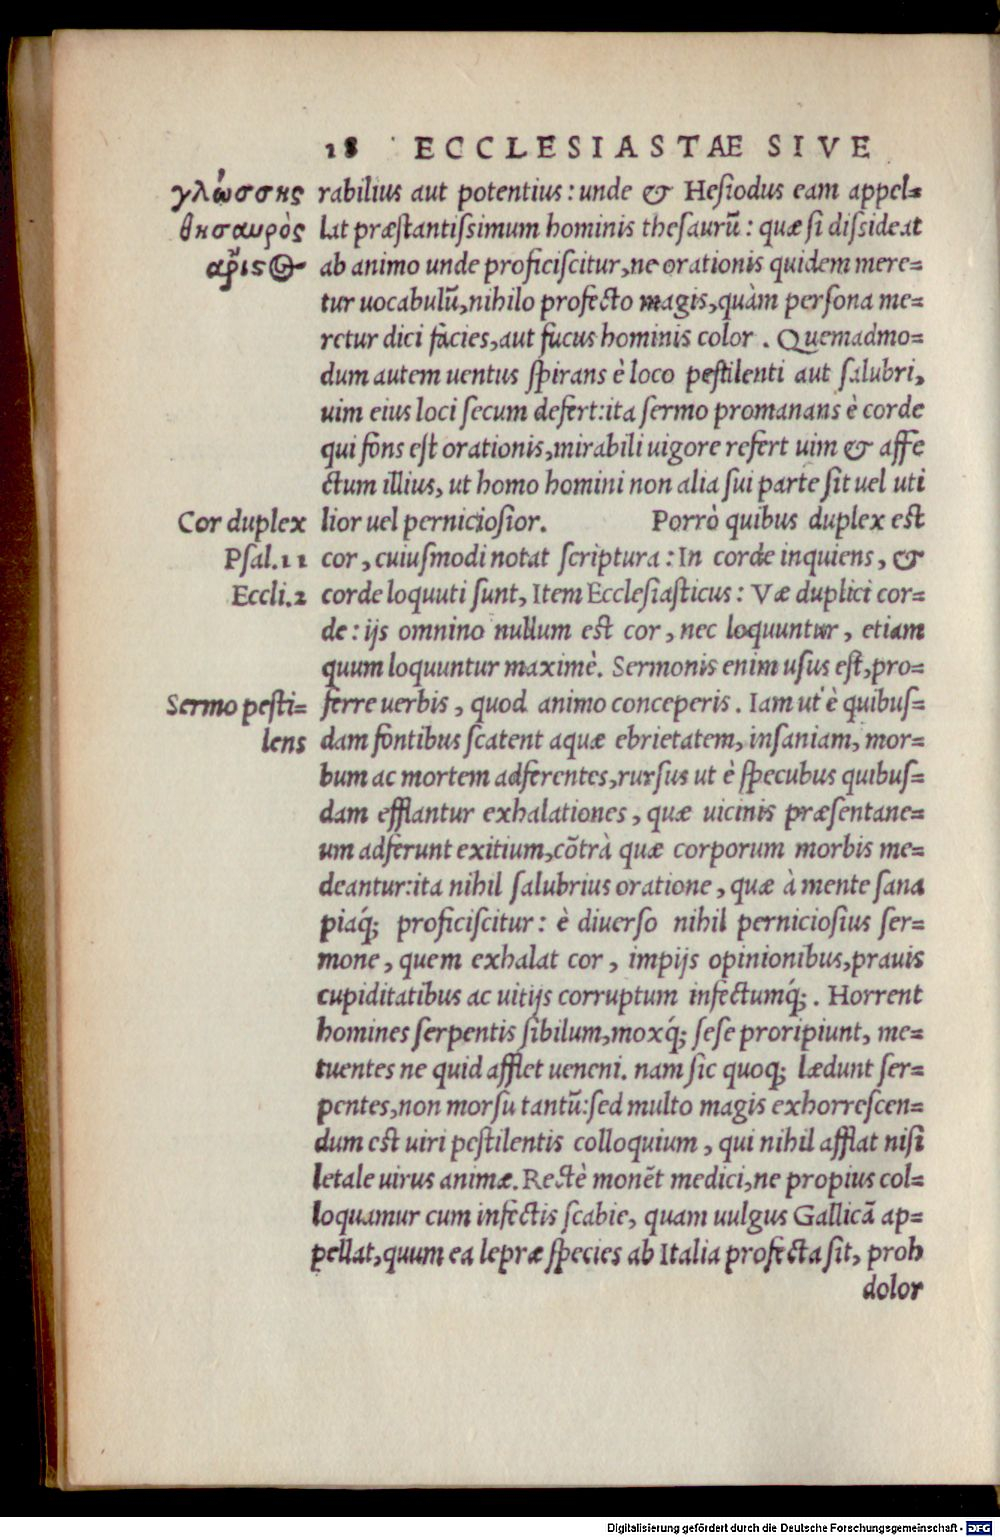 18 ECCLESIASTAE SIVE
γλώσσης
θησαυρὸς
ἄρισος
rabilius aut potentius: unde & Hesiodus eam appel=
lat præstantissimum hominis thesaurū: quæ si dissideat
ab animo unde proficiscitur, ne orationis quidem mere=
tur uocabulū, nihilo profecto magis, quàm persona me=
retur dici facies, aut fucus hominis color. Quemadmo=
dum autem uentus spirans è loco pestilenti aut salubri,
uim eius loci secum defert: ita sermo promanans è corde
qui fons est orationis, mirabili uigore refert uim & affe
ctum illius, ut homo homini non alia sui parte sit uel uti
Cor duplex
lior uel perniciosior. Porrò quibus duplex est
Psal.11
cor, cuiusmodi notat scriptura: In corde inquiens, &
Eccli.2
corde loquuti sunt, Item Ecclesiasticus: Væ duplici cor=
de: ijs omnino nullum est cor, nec loquuntur, etiam
quum loquuntur maximè. Sermonis enim usus est, pro=
Sermo pesti=
lens
ferre uerbis, quod animo conceperis. Iam ut è quibus=
dam fontibus scatent aquæ ebrietatem, insaniam, mor=
bum ac mortem adferentes, rursus ut è specubus quibus=
dam efflantur exhalationes, quæ uicinis præsentane=
um adferunt exitium, cōtrà quæ corporum morbis me=
deantur: ita nihil salubrius oratione, quæ à mente sana
piaq́; proficiscitur: è diuerso nihil perniciosius ser=
mone, quem exhalat cor, impijs opinionibus, prauis
cupiditatibus ac uitijs corruptum infectumq́;. Horrent
homines serpentis sibilum, moxq́; sese proripiunt, me=
tuentes ne quid afflet ueneni. nam sic quoq; lædunt ser=
pentes, non morsu tantū: sed multo magis exhorrescen=
dum est uiri pestilentis colloquium, qui nihil afflat nisi
letale uirus animæ. Rectè monēt medici, ne propius col=
loquamur cum infectis scabie, quam uulgus Gallicā ap=
pellat, quum ea lepræ species ab Italia profecta sit, proh
dolor
Digitalisierung gefördert durch die Deutsche Forschungsgemeinschaft - DFG